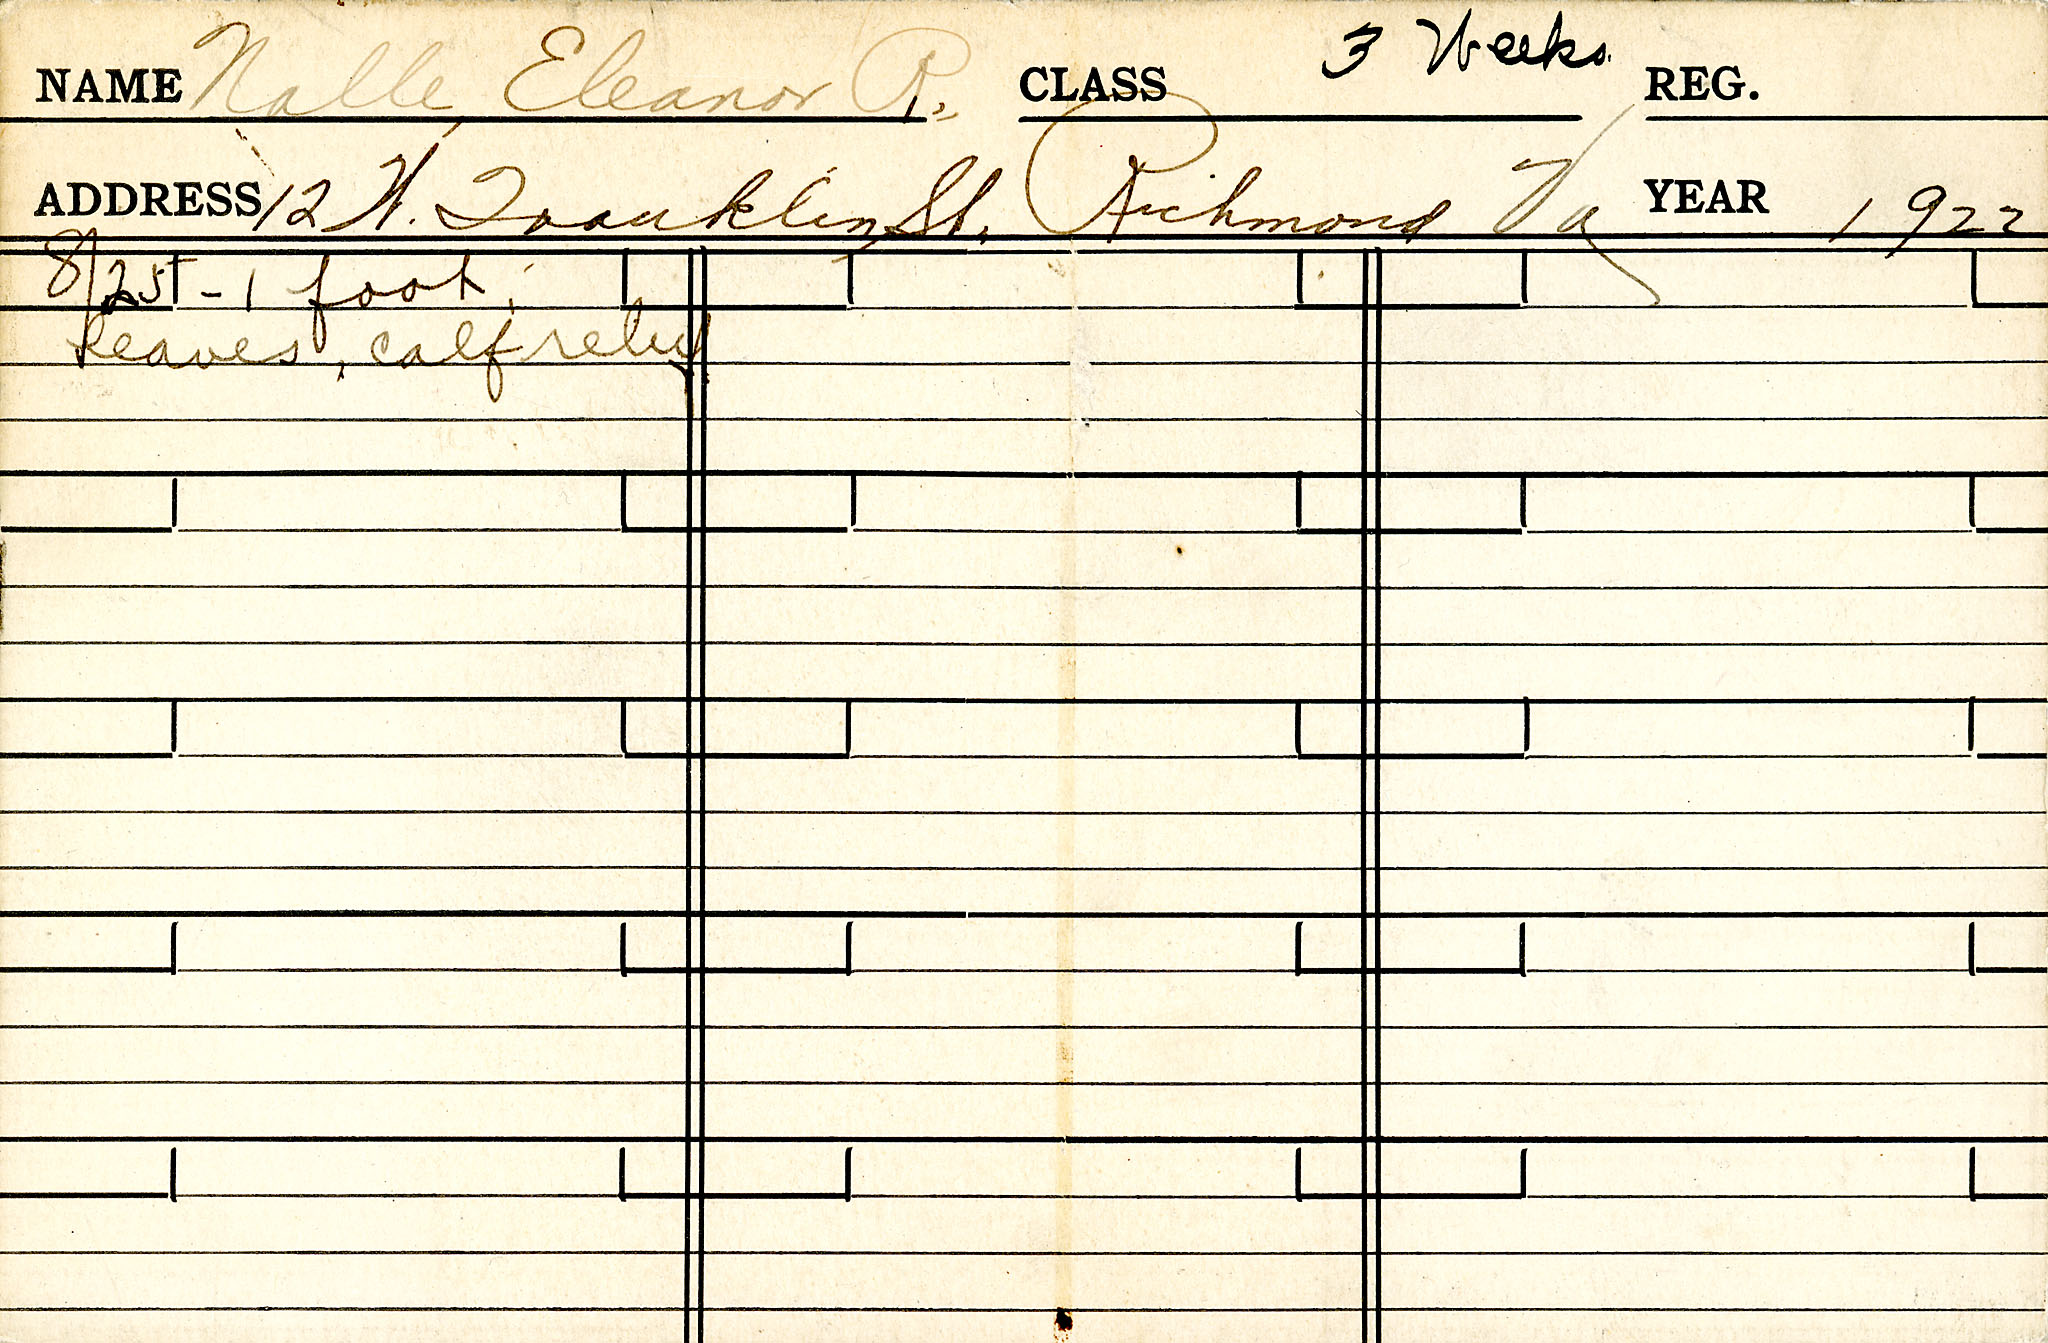 NAME Nalle, Eleanor R. CLASS 3 Weeks. REG.
ADDRESS 12 W. Franklin St. Richmond Va YEAR 1922
8/25 - 1 foot,
leaves, calf